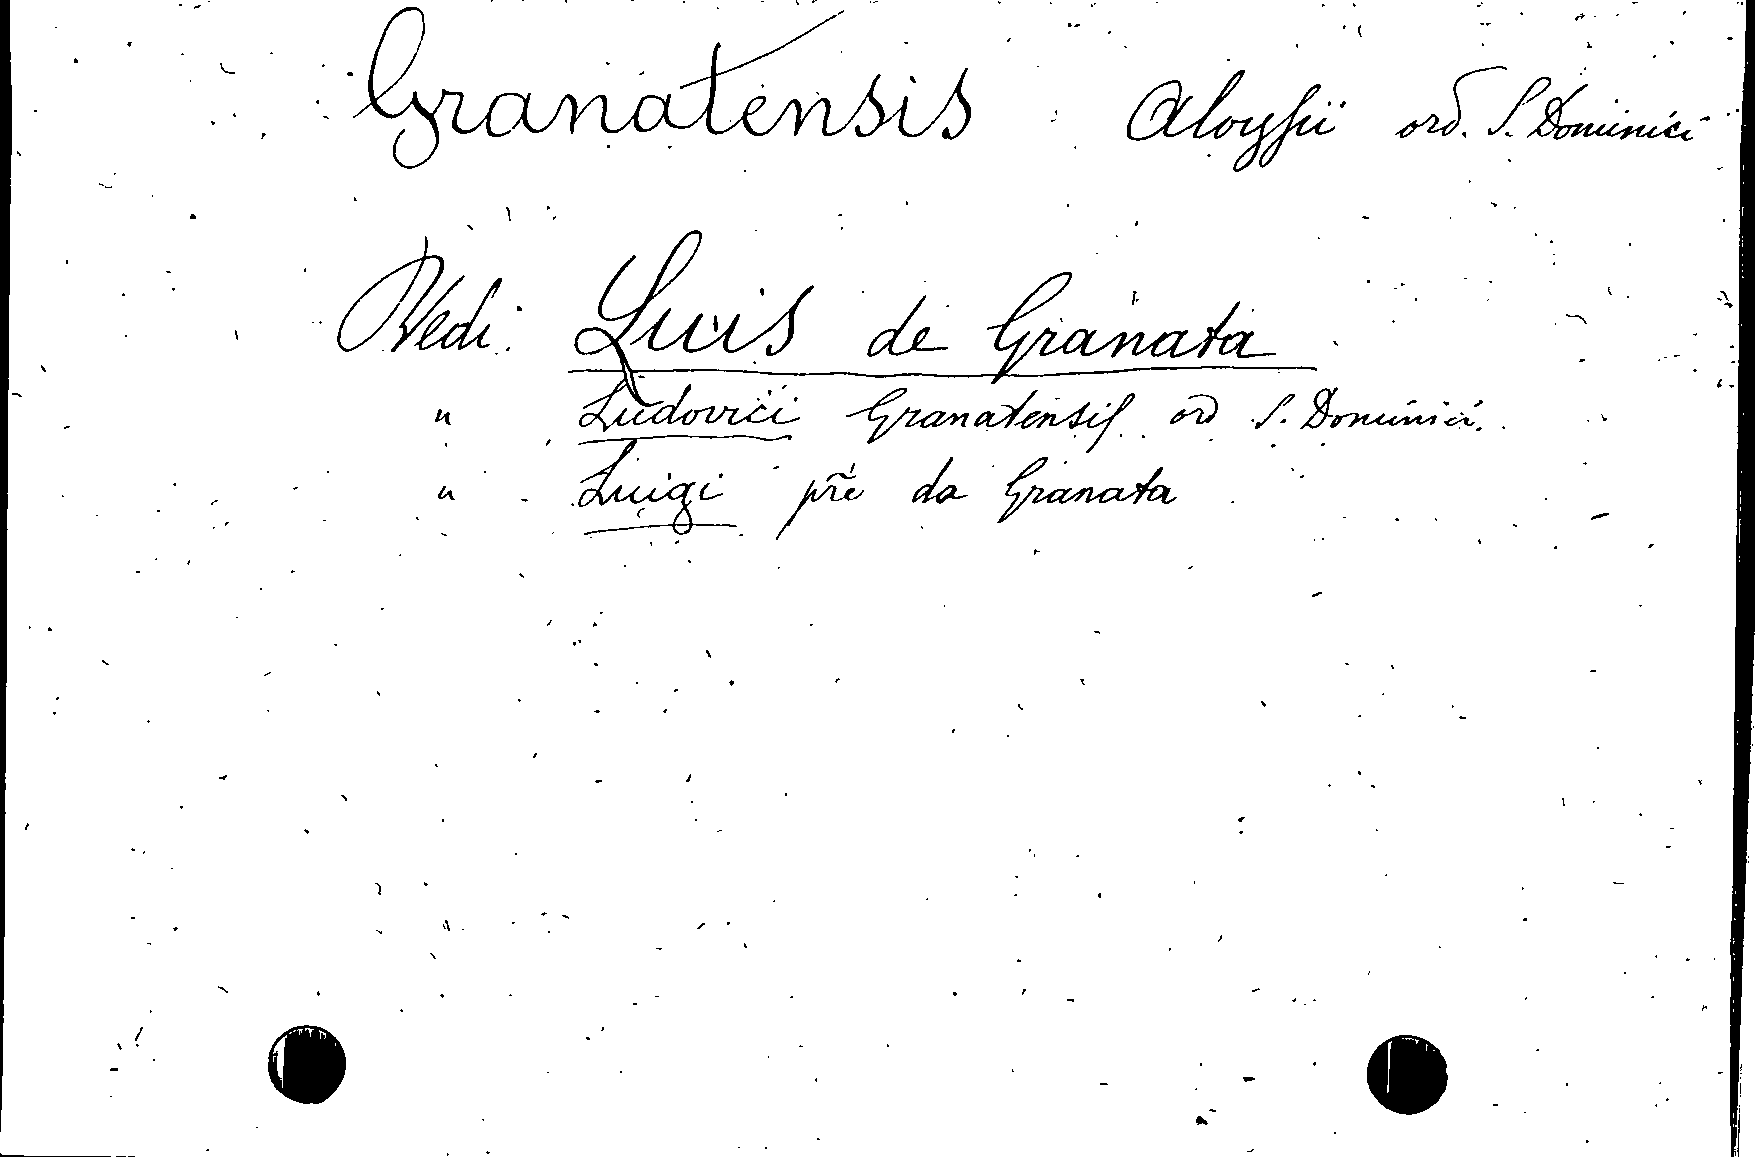 Granatensis Aloysii ord. S. Dominici
Vedi: Luis de Granata
" Ludovici Granatensis ord S. Dominici.
" Luigi pr̃e da Granata